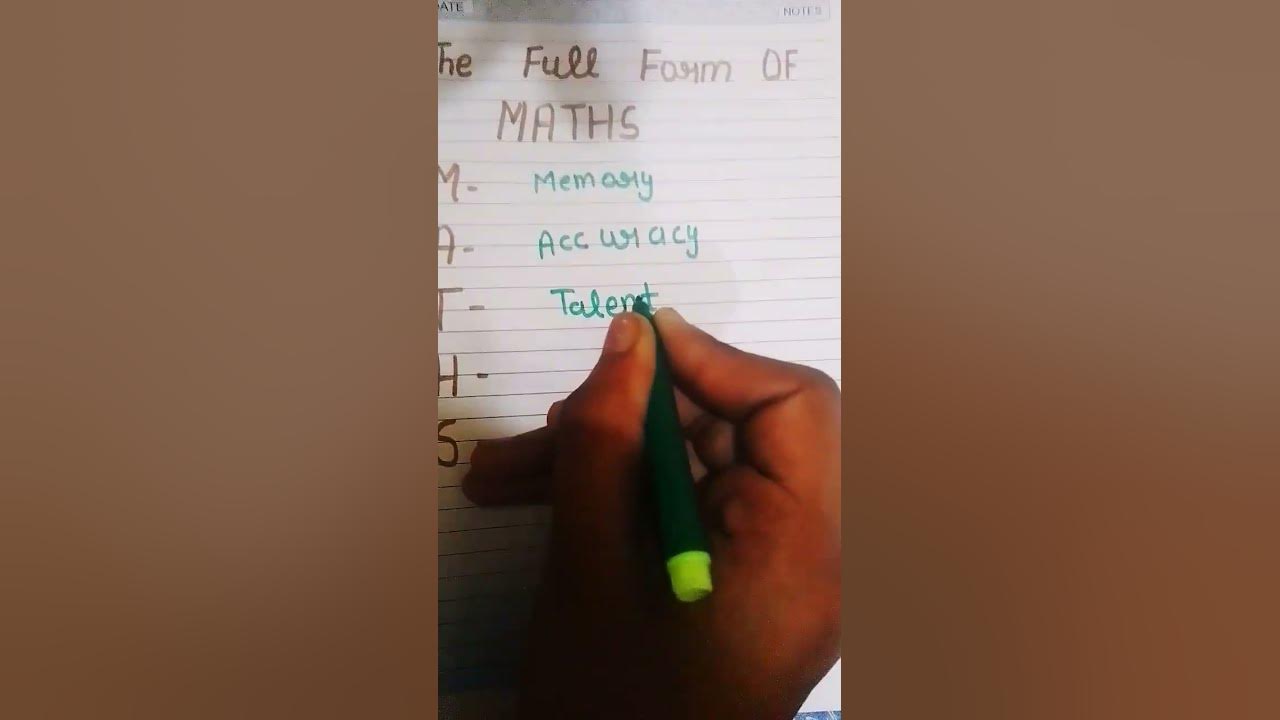 DATE NOTES
The Full Form OF
MATHS
M- Memory
A- Accuracy
T- Talent
H-
S